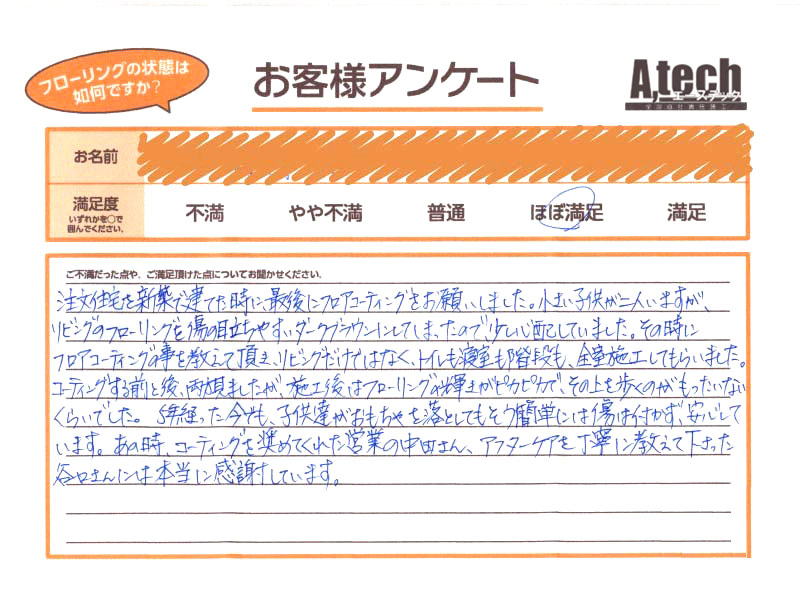 フローリングの状態は
如何ですか?
お客様アンケート
A,tech
エーステック
お名前
満足度
いずれかを○で
囲んでください。
不満 やや不満 普通 ほぼ満足 満足
ご不満だった点や、ご満足頂けた点についてお聞かせください。
注文住宅を新築で建てた時に、最後にフロアコーティングをお願いしました。小さい子供が二人いますが、
リビングのフローリングを傷の目立ちやすいダークブラウンにしてしまったので、少し心配していました。その時に
フロアコーティングの事を教えて頂き、リビングだけではなく、トイレも寝室も階段も、全室施工してもらいました。
コーティングする前と後、両方見ましたが、施工後はフローリングの輝きがピカピカで、その上を歩くのがもったいない
くらいでした。5年経った今でも、子供達がおもちゃを落としてもそう簡単には傷は付かず、安心して
います。あの時、コーティングを奨めてくれた営業の中田さん、アフターケアを丁寧に教えて下さった
谷口さんには本当に感謝しています。